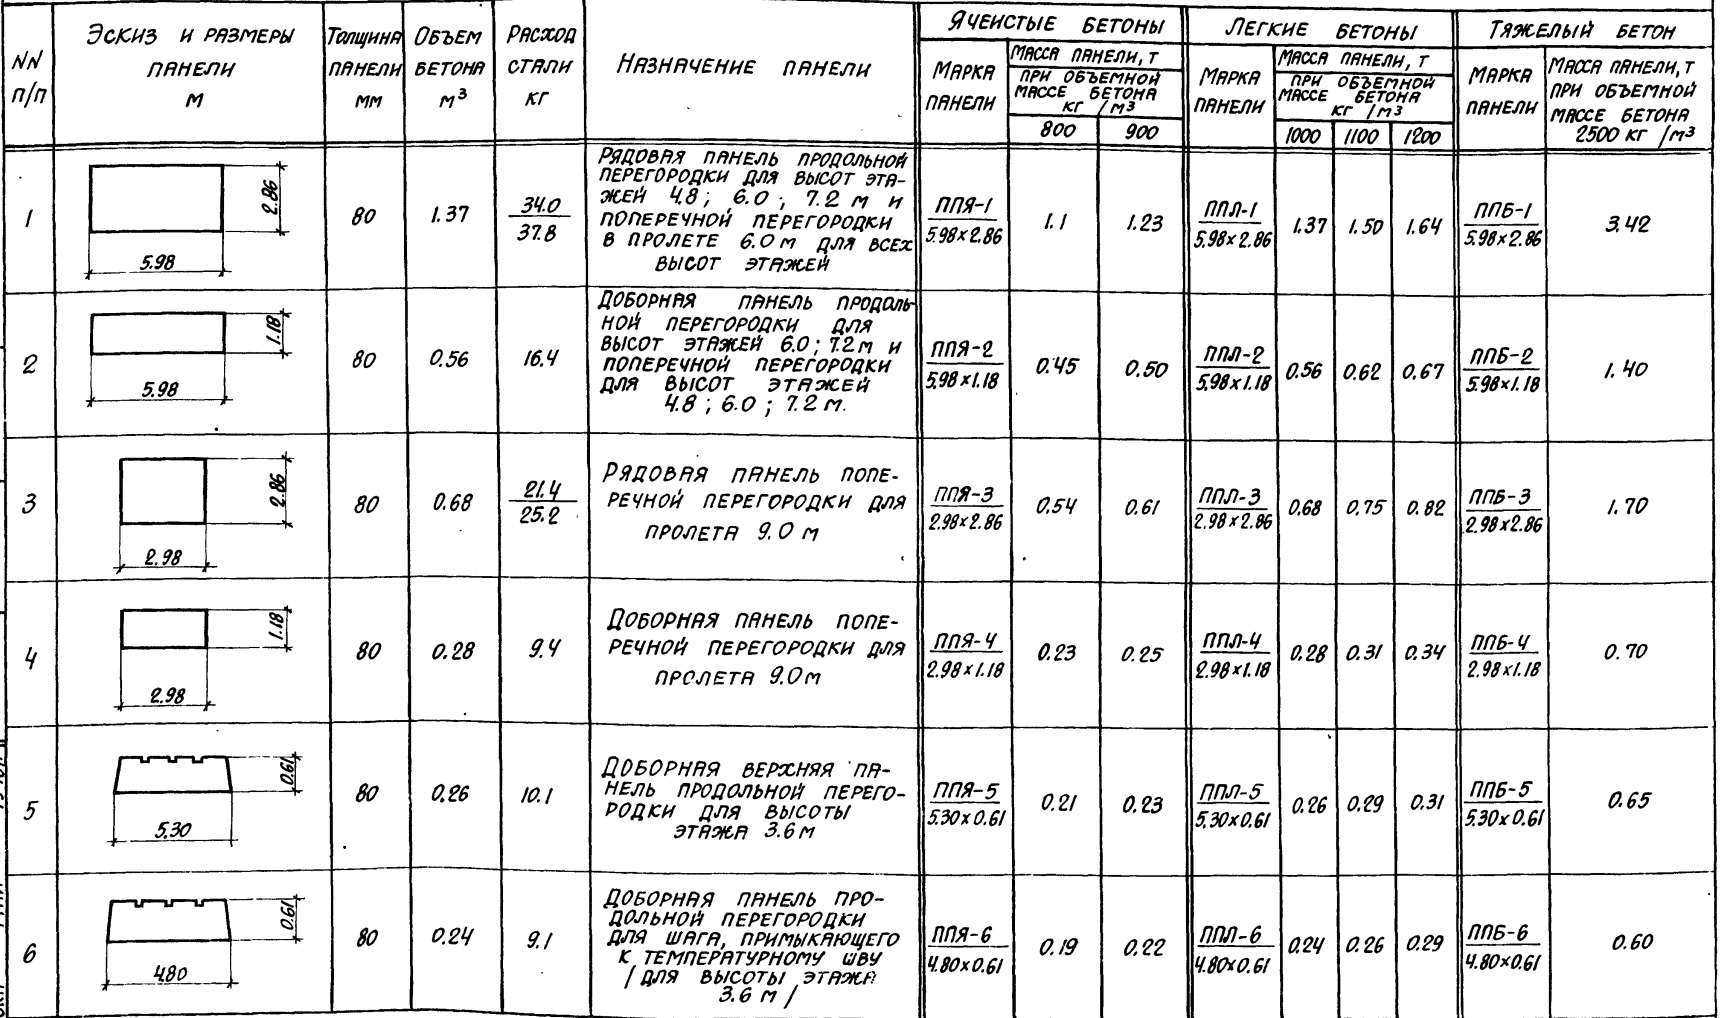 NN п/п
Эскиз и размеры панели м
Толщина панели мм
Объем бетона м³
Расход стали кг
Назначение панели
Ячеистые бетоны
Марка панели
Масса панели, т
при объемной массе бетона кг/м³
800 900
Легкие бетоны
Марка панели
Масса панели, т
при объемной массе бетона кг/м³
1000 1100 1200
Тяжелый бетон
Марка панели
Масса панели, т при объемной массе бетона 2500 кг/м³
1
5.98
2.86
80
1.37
34.0
37.8
Рядовая панель продольной
перегородки для высот эта-
жей 4.8; 6.0; 7.2 м и
поперечной перегородки
в пролете 6.0 м для всех
высот этажей
ППЯ-1
5.98×2.86
1.1 1.23
ППЛ-1
5.98×2.86
1.37 1.50 1.64
ППБ-1
5.98×2.86
3.42
2
5.98
1.18
80
0.56
16.4
Доборная панель продоль-
ной перегородки для
высот этажей 6.0; 7.2 м и
поперечной перегородки
для высот этажей
4.8; 6.0; 7.2 м.
ППЯ-2
5.98×1.18
0.45 0.50
ППЛ-2
5.98×1.18
0.56 0.62 0.67
ППБ-2
5.98×1.18
1.40
3
2.98
2.86
80
0.68
21.4
25.2
Рядовая панель попе-
речной перегородки для
пролета 9.0 м
ППЯ-3
2.98×2.86
0.54 0.61
ППЛ-3
2.98×2.86
0.68 0.75 0.82
ППБ-3
2.98×2.86
1.70
4
2.98
1.18
80
0.28
9.4
Доборная панель попе-
речной перегородки для
пролета 9.0 м
ППЯ-4
2.98×1.18
0.23 0.25
ППЛ-4
2.98×1.18
0.28 0.31 0.34
ППБ-4
2.98×1.18
0.70
5
5.30
0.61
80
0.26
10.1
Доборная верхняя па-
нель продольной перего-
родки для высоты
этажа 3.6 м
ППЯ-5
5.30×0.61
0.21 0.23
ППЛ-5
5.30×0.61
0.26 0.29 0.31
ППБ-5
5.30×0.61
0.65
6
4.80
0.61
80
0.24
9.1
Доборная панель про-
дольной перегородки
для шага, примыкающего
к температурному шву
/для высоты этажа
3.6 м/
ППЯ-6
4.80×0.61
0.19 0.22
ППЛ-6
4.80×0.61
0.24 0.26 0.29
ППБ-6
4.80×0.61
0.60